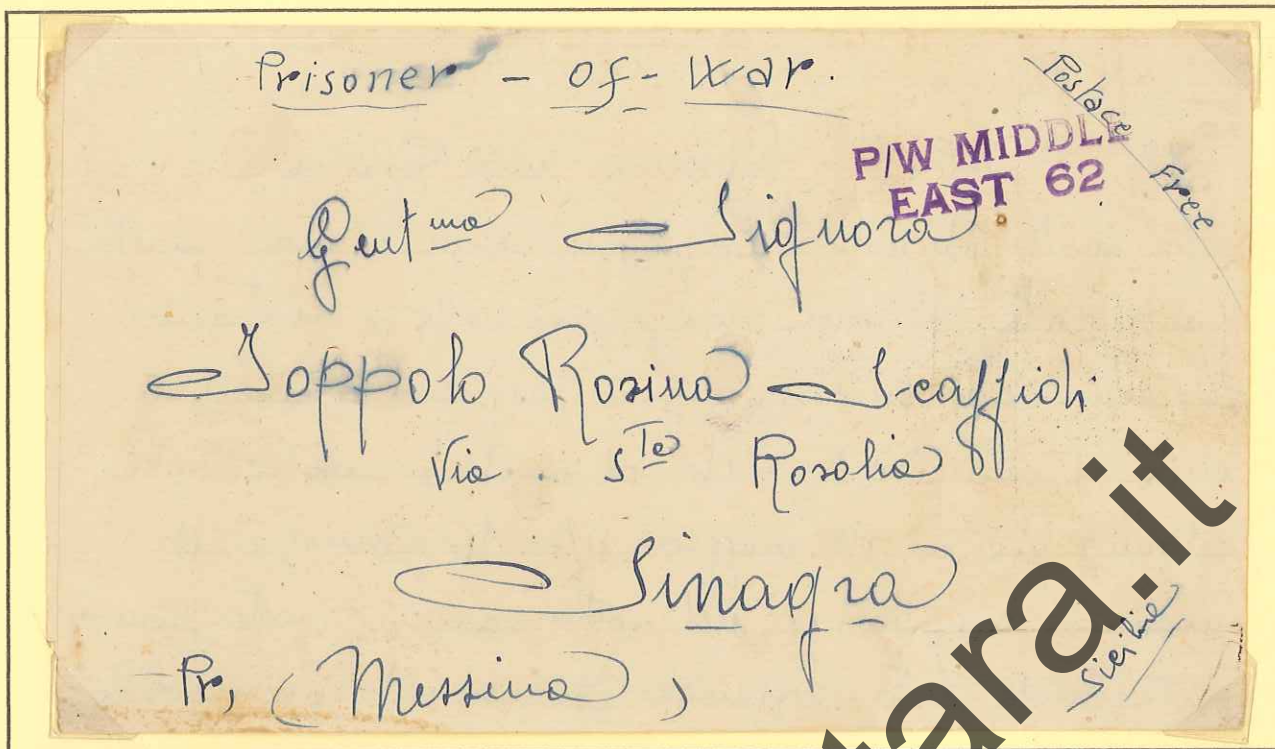 Prisoner - of - War.
Postace Free
P/W MIDDLE
EAST 62
Gent ma Signora
Joppolo Rosina Scaffidi
Via . S Ta Rosalia
Sinagra
Pr, (Messina)
Sicilia
tara.it